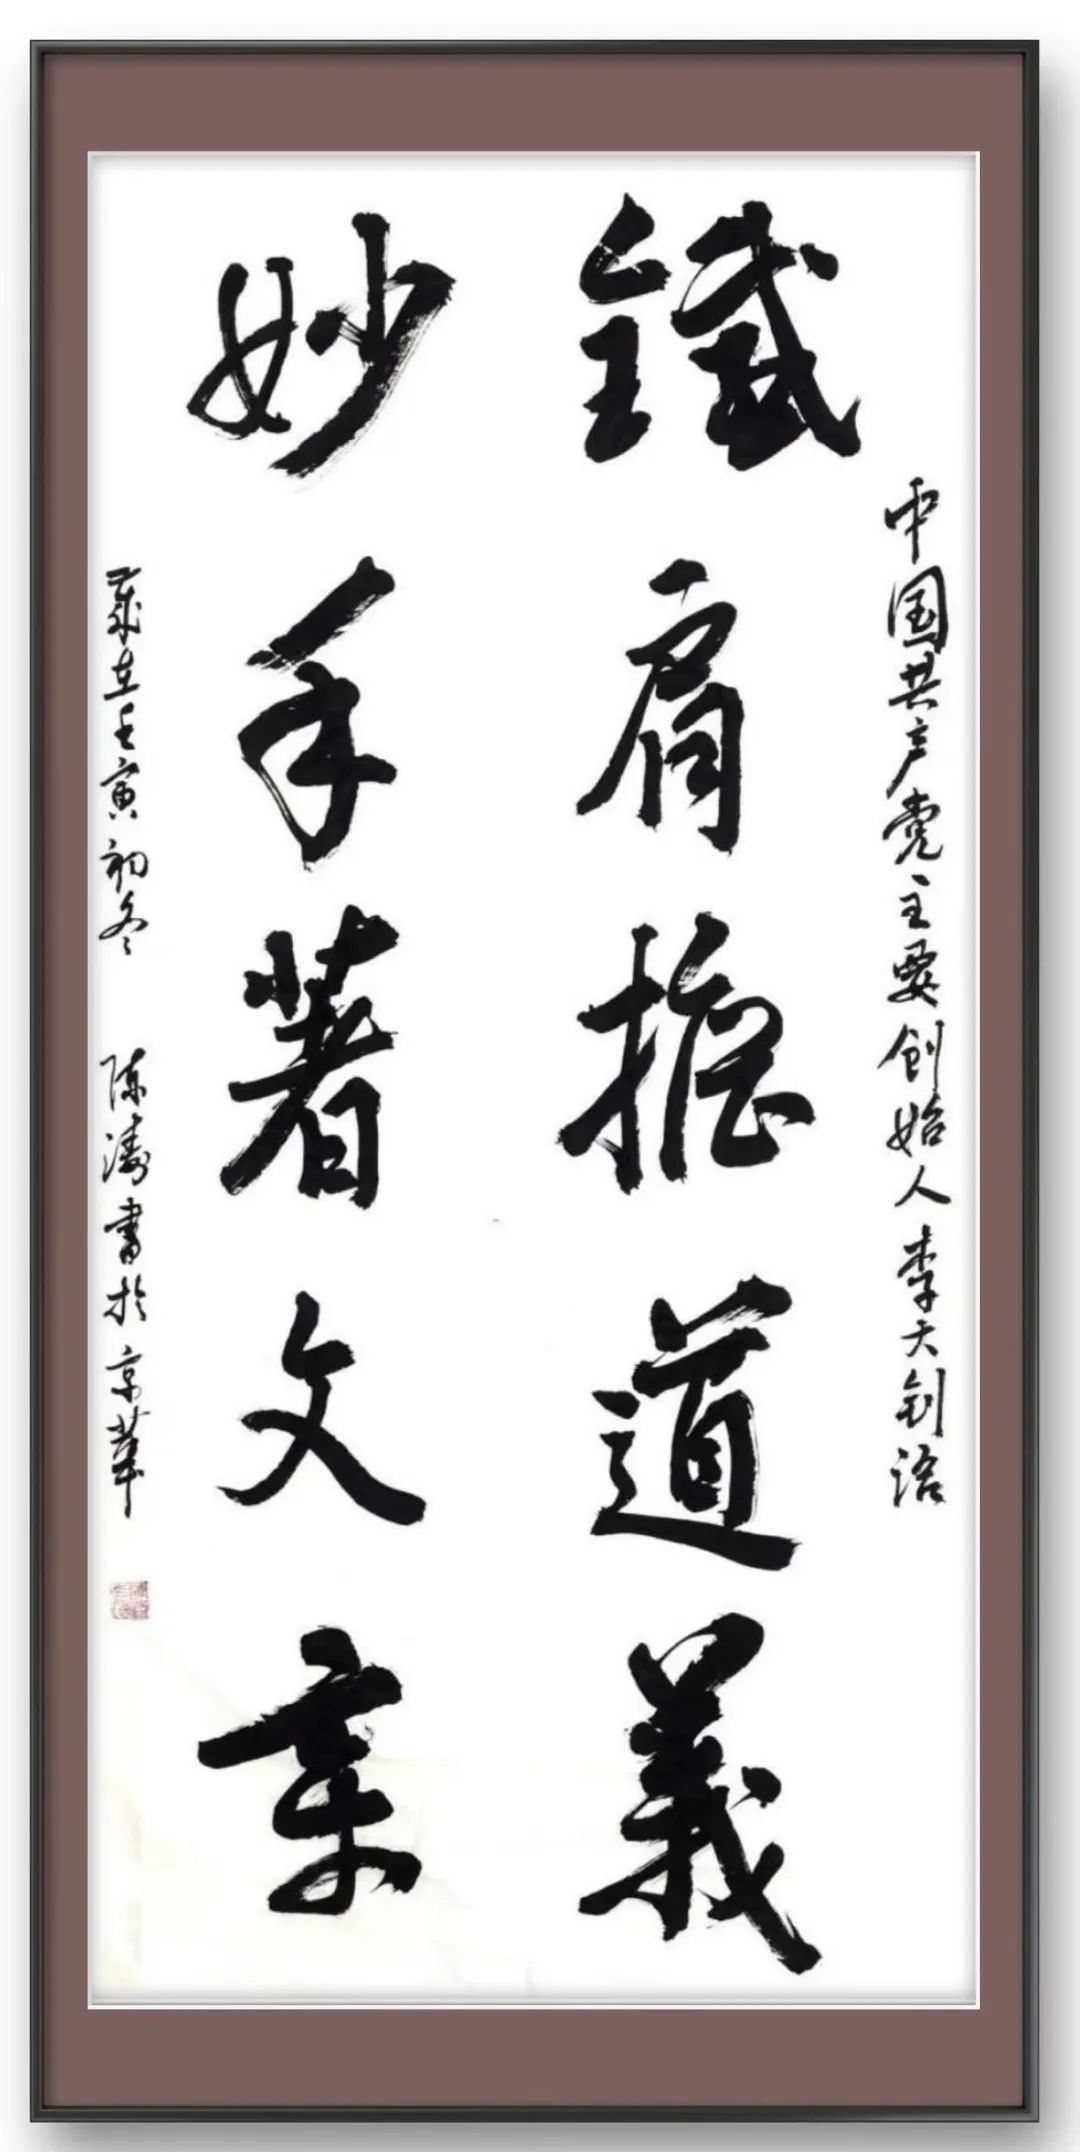 中国共产党主要创始人李大钊语
鐵肩擔道義
妙手著文章
歲在壬寅初冬 陈濤書於京華